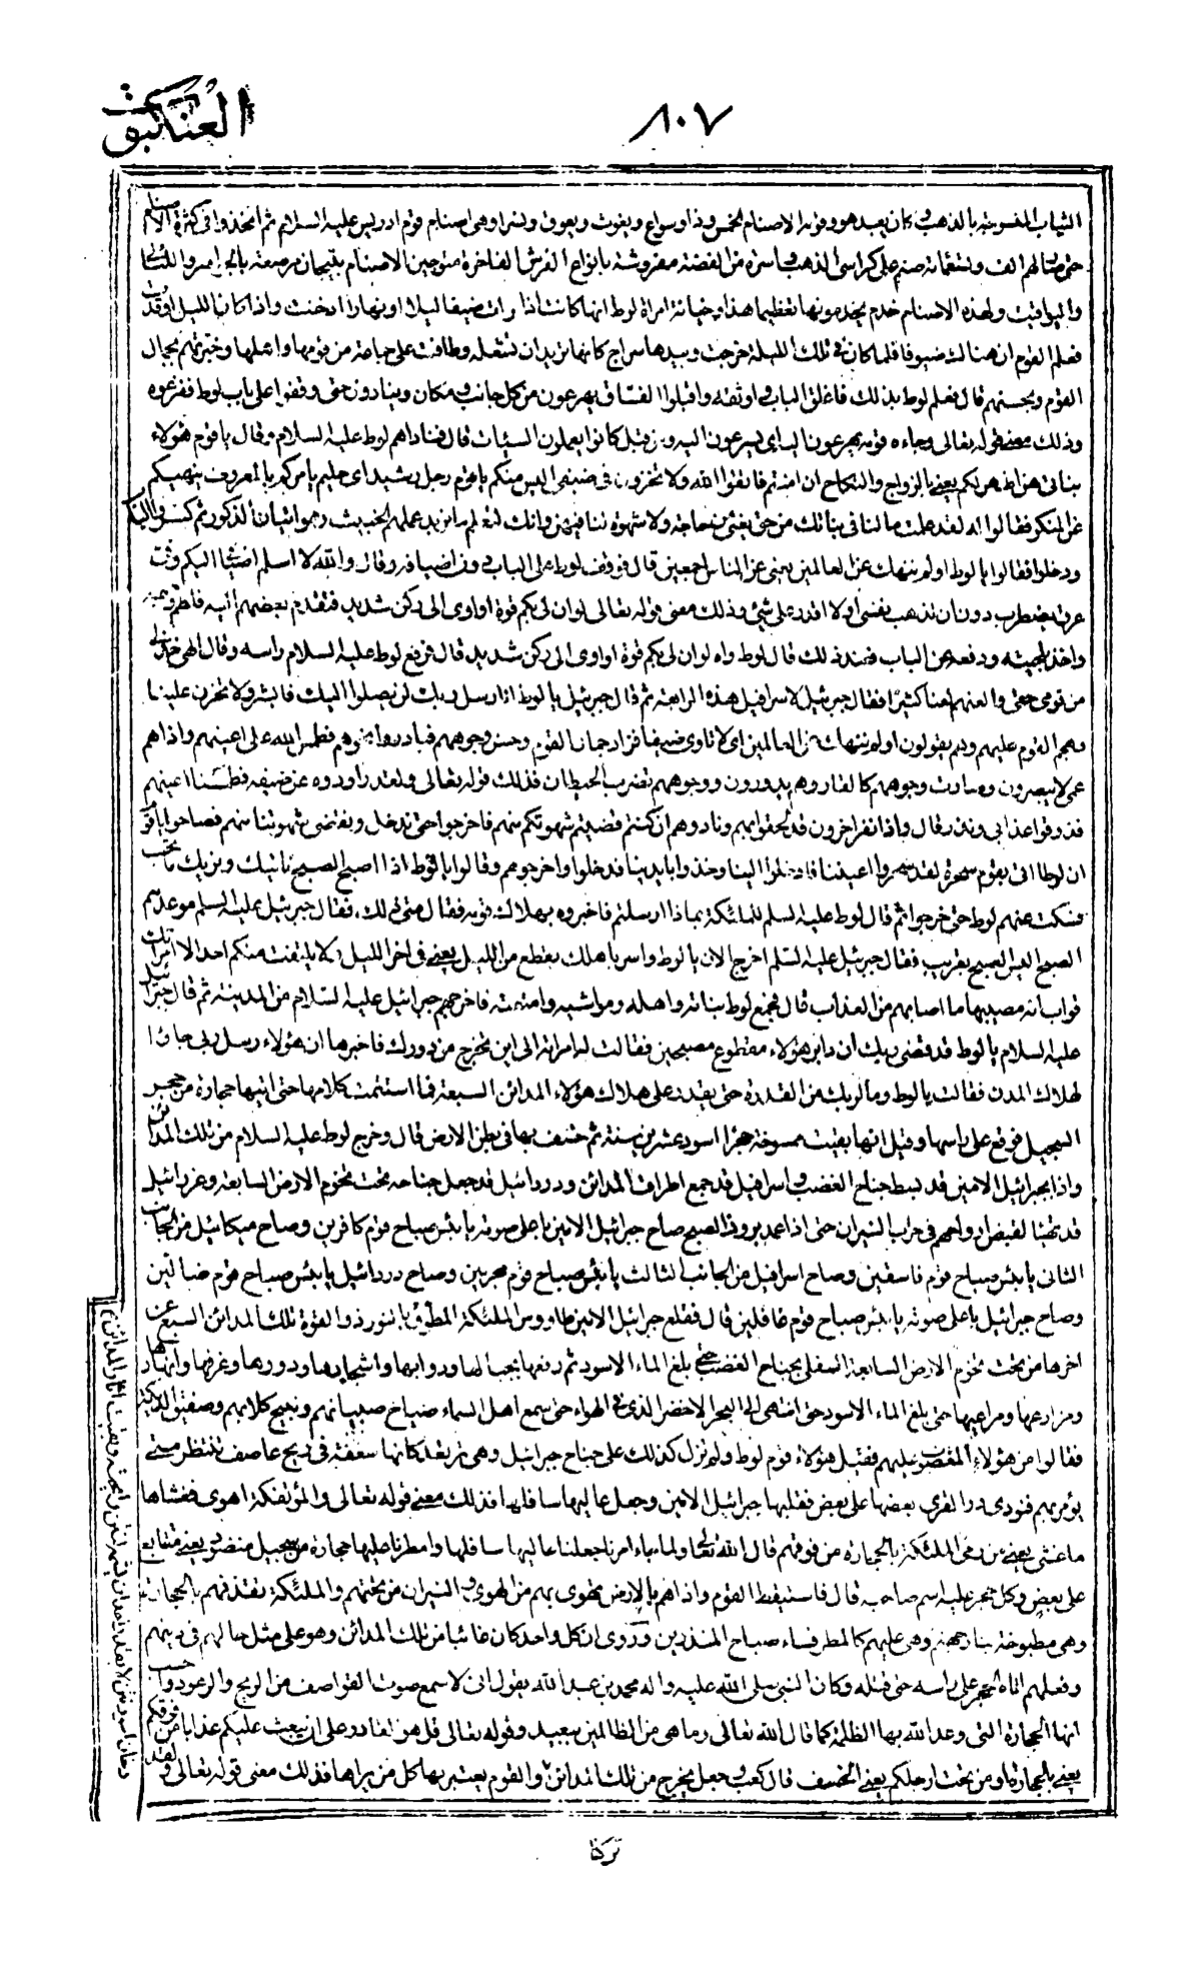 العنكبوت
٨٠٧
الثياب المنسوجة بالذهب وكان يعبد هو وقومه الاصنام الخمس ودا وسواع ويغوث ويعوق ونسرا وهي اصنام قوم ادريس عليه السلام ثم اتخذوا في كثرة الاصنام
حتى صار لهم الف وتسعمائة صنم على كراسي الذهب واسرة من الفضة مفروشة بانواع الفرش الفاخرة متوجين الاصنام بتيجان مرصعة بالجواهر واللئالي
واليواقيت ولهذه الاصنام خدم يخدمونها تعظيما هذا وخيانة امراة لوط انها كانت اذا رات ضيفا ليلا او نهارا ادخنت واذا كان الليل اوقدت
فعلم القوم ان هناك ضيوفا فلما كان في تلك الليلة خرجت وبيدها سراج كانها تريد ان تشعله وطافت على جماعة من قومها واهلها وخبرتهم بجمال
القوم وبحسنهم قال فعلم لوط بذلك فاغلق الباب واوثقه واقبلوا الفساق يهرعون من كل جانب ومكان وينادون حتى وقفوا على باب لوط ففزعوه
وذلك معنى قوله تعالى وجاءه قومه يهرعون اليه اي يسرعون اليه ومن قبل كانوا يعملون السيئات قال فناداهم لوط عليه السلام وقال يا قوم هؤلاء
بناتي هن اطهر لكم يعني بالزواج والنكاح ان امنتم فاتقوا الله ولا تخزون في ضيفي اليس منكم يا قوم رجل رشيد اي حليم يامركم بالمعروف وينهيكم
عن المنكر فقالوا له لقد علمت ما لنا في بناتك من حق يعني من حاجة ولا شهوة لنا فيهن وانك لتعلم ما نريد عملهم الخبيث وهو اتيان الذكور ثم كسروا الباب
ودخلوا فقالوا يا لوط اولم ننهك عن العالمين يعني عن الناس اجمعين قال فوقف لوط على الباب دون اضيافه وقال والله لا اسلم اضيافي اليكم وفي
عرق يضطرب دون ان تذهب نفسي اولا اقدر على شيء وذلك معنى قوله تعالى لو ان لي بكم قوة او اوى الى ركن شديد فتقدم بعضهم اليه فلطم وجهه
واخذ بلحيته ودفعه عن الباب فعند ذلك قال لوط واه لو ان لي بكم قوة او اوى الى ركن شديد قال فرفع لوط عليه السلام راسه وقال الهي خذ لي
من قومي حقي والعنهم لعنا كثيرا فقال جبرئيل لاسرافيل هذه الرابعة ثم قال جبرئيل يا لوط انا رسل ربك لن يصلوا اليك فابشر ولا تحزن علينا
وهجم القوم عليهم وهم يقولون اولم ننهك عن العالمين اي لا تاوي ضيفا فراو جمال القوم وحسن وجوههم فبادروا نحوهم فطمس الله على اعينهم واذا هم
عمي لا يبصرون وصارت وجوههم كالقار وهم يدورون ووجوههم تضرب الحيطان فذلك قوله تعالى ولقد راودوه عن ضيفه فطمسنا اعينهم
فذوقوا عذابي ونذر قال واذا نفر اخرون قد لحقوا بهم ونادوهم ان كنتم قضيتم شهوتكم منهم فاخرجوا حتى ندخل ونقضي شهوتنا منهم فصاحوا يا قوم
ان لوطا اتى بقوم سحرة لقد سحروا اعيننا فادخلوا الينا وخذوا بايدينا فدخلوا واخرجوهم وقالوا يا لوط اذا اصبح الصبح ناتيك ونريك ما تحب
فسكت عنهم لوط حتى خرجوا ثم قال لوط عليه السلم للملئكة بماذا ارسلتم فاخبروه بهلاك قومه فقال متى ذلك، فقال جبرئيل عليه السلم موعدهم
الصبح اليس الصبح بقريب فقال جبرئيل عليه السلم اخرج الان يا لوط واسر باهلك بقطع من الليل يعني في اخر الليل ولا يلتفت منكم احد الا امراتك
فوابانه مصيبها ما اصابهم من العذاب قال فجمع لوط بناته واهله ومواشيه وامتعته فاخرجهم جبرائيل عليه السلام من المدينة ثم قال جبرائيل
عليه السلام يا لوط قد قضى ربك ان دابر هؤلاء مقطوع مصبحين فقالت له امراته الى اين تخرج من دورك فاخبرها ان هؤلاء رسل ربي جاؤا
لهلاك المدن فقالت يا لوط وما لربك من القدرة حتى يقدر على هلاك هؤلاء المدائن السبعة فما استتمت كلامها حتى اتيها حجارة من حجر
السجيل فوقع على راسها وقيل انها بقيت ممسوخة حجرا اسود عشرين سنة ثم خسف بها في بطن الارض قال وخرج لوط عليه السلام من تلك المدائن
واذا بجبرائيل الامين قد بسط جناح الغضب واسرافيل قد جمع اطراف المدائن ودردائيل قد جعل جناحه تحت تخوم الارض السابعة وعزرائيل
قد تهيأ لقبض ارواحهم في حراب النيران حتى اذا عمد بروز الصبح صاح جبرائيل الامين باعلى صوته يا بئس صباح قوم كافرين وصاح ميكائيل من الجانب
الثاني يا بئس صباح قوم فاسقين وصاح اسرافيل من الجانب الثالث يا بئس صباح قوم مجرمين وصاح دردائيل يا بئس صباح قوم ضالين
وصاح جبرائيل باعلى صوته يا بئس صباح قوم غافلين قال فقلع جبرائيل الامين طاووس الملئكة المطوق بالنور ذو القوة تلك المدائن السبع عن
اخرها من تحت تخوم الارض السابعة السفلى بجناح الغضب حتى بلغ الماء الاسود ثم رفعها بجبالها ودوابها واشجارها ودورها وغرفها وانهارها
ومزارعها ومراعيها حتى بلغ الماء الاسود حتى انتهى الى البحر الاخضر الذي في الهواء حتى سمع اهل السماء صياح صبيانهم ونبيح كلابهم وصفيق الديكة
فقالوا من هؤلاء المغضوب عليهم فقيل هؤلاء قوم لوط ولم نزل كذلك على جناح جبرائيل وهي ترتعد كانها سعفة في ريح عاصف تنتظر متى
يؤمر بهم فنودي در القرى بعضها على بعض فقلبها جبرائيل الامين وجعل عاليها سافلها فذلك معنى قوله تعالى والمؤتفكة اهوى فغشاها
ما غشى يعني من رمي الملئكة بالحجارة من فوقهم قال الله تعالى ولما جاء امرنا جعلنا عاليها سافلها وامطرنا عليها حجارة من سجيل منضود يعني متتابع
على بعض وكل حجر عليه اسم صاحبه قال فاستيقظ القوم واذا هم بالارض تهوى بهم من الهوى والنيران من تحتهم والملئكة تقذفهم بالحجارة
وهي مطبوخة بنار جهنم وهي عليهم كالمطر فساء صباح المنذرين وروى ان كل واحد كان غائبا من تلك المدائن وهو على مثل حالهم في دينهم
وفعلهم اتاه الحجر على راسه حتى قتله وكان النبي صلى الله عليه واله محمد بن عبد الله يقول اني لاسمع صوت القواصف من الريح والرعود واحسب
انها الحجارة التي وعد الله بها الظلمة كما قال الله تعالى وما هي من الظالمين ببعيد وقوله تعالى قل هو القادر على ان يبعث عليكم عذابا من فوقكم
يعني بالحجارة او من تحت ارجلكم يعني الخسف قال كعب وجعل يخرج من تلك المدائن والقوم يعتبر بها كل من يراها فذلك معنى قوله تعالى ولقد
تركنا